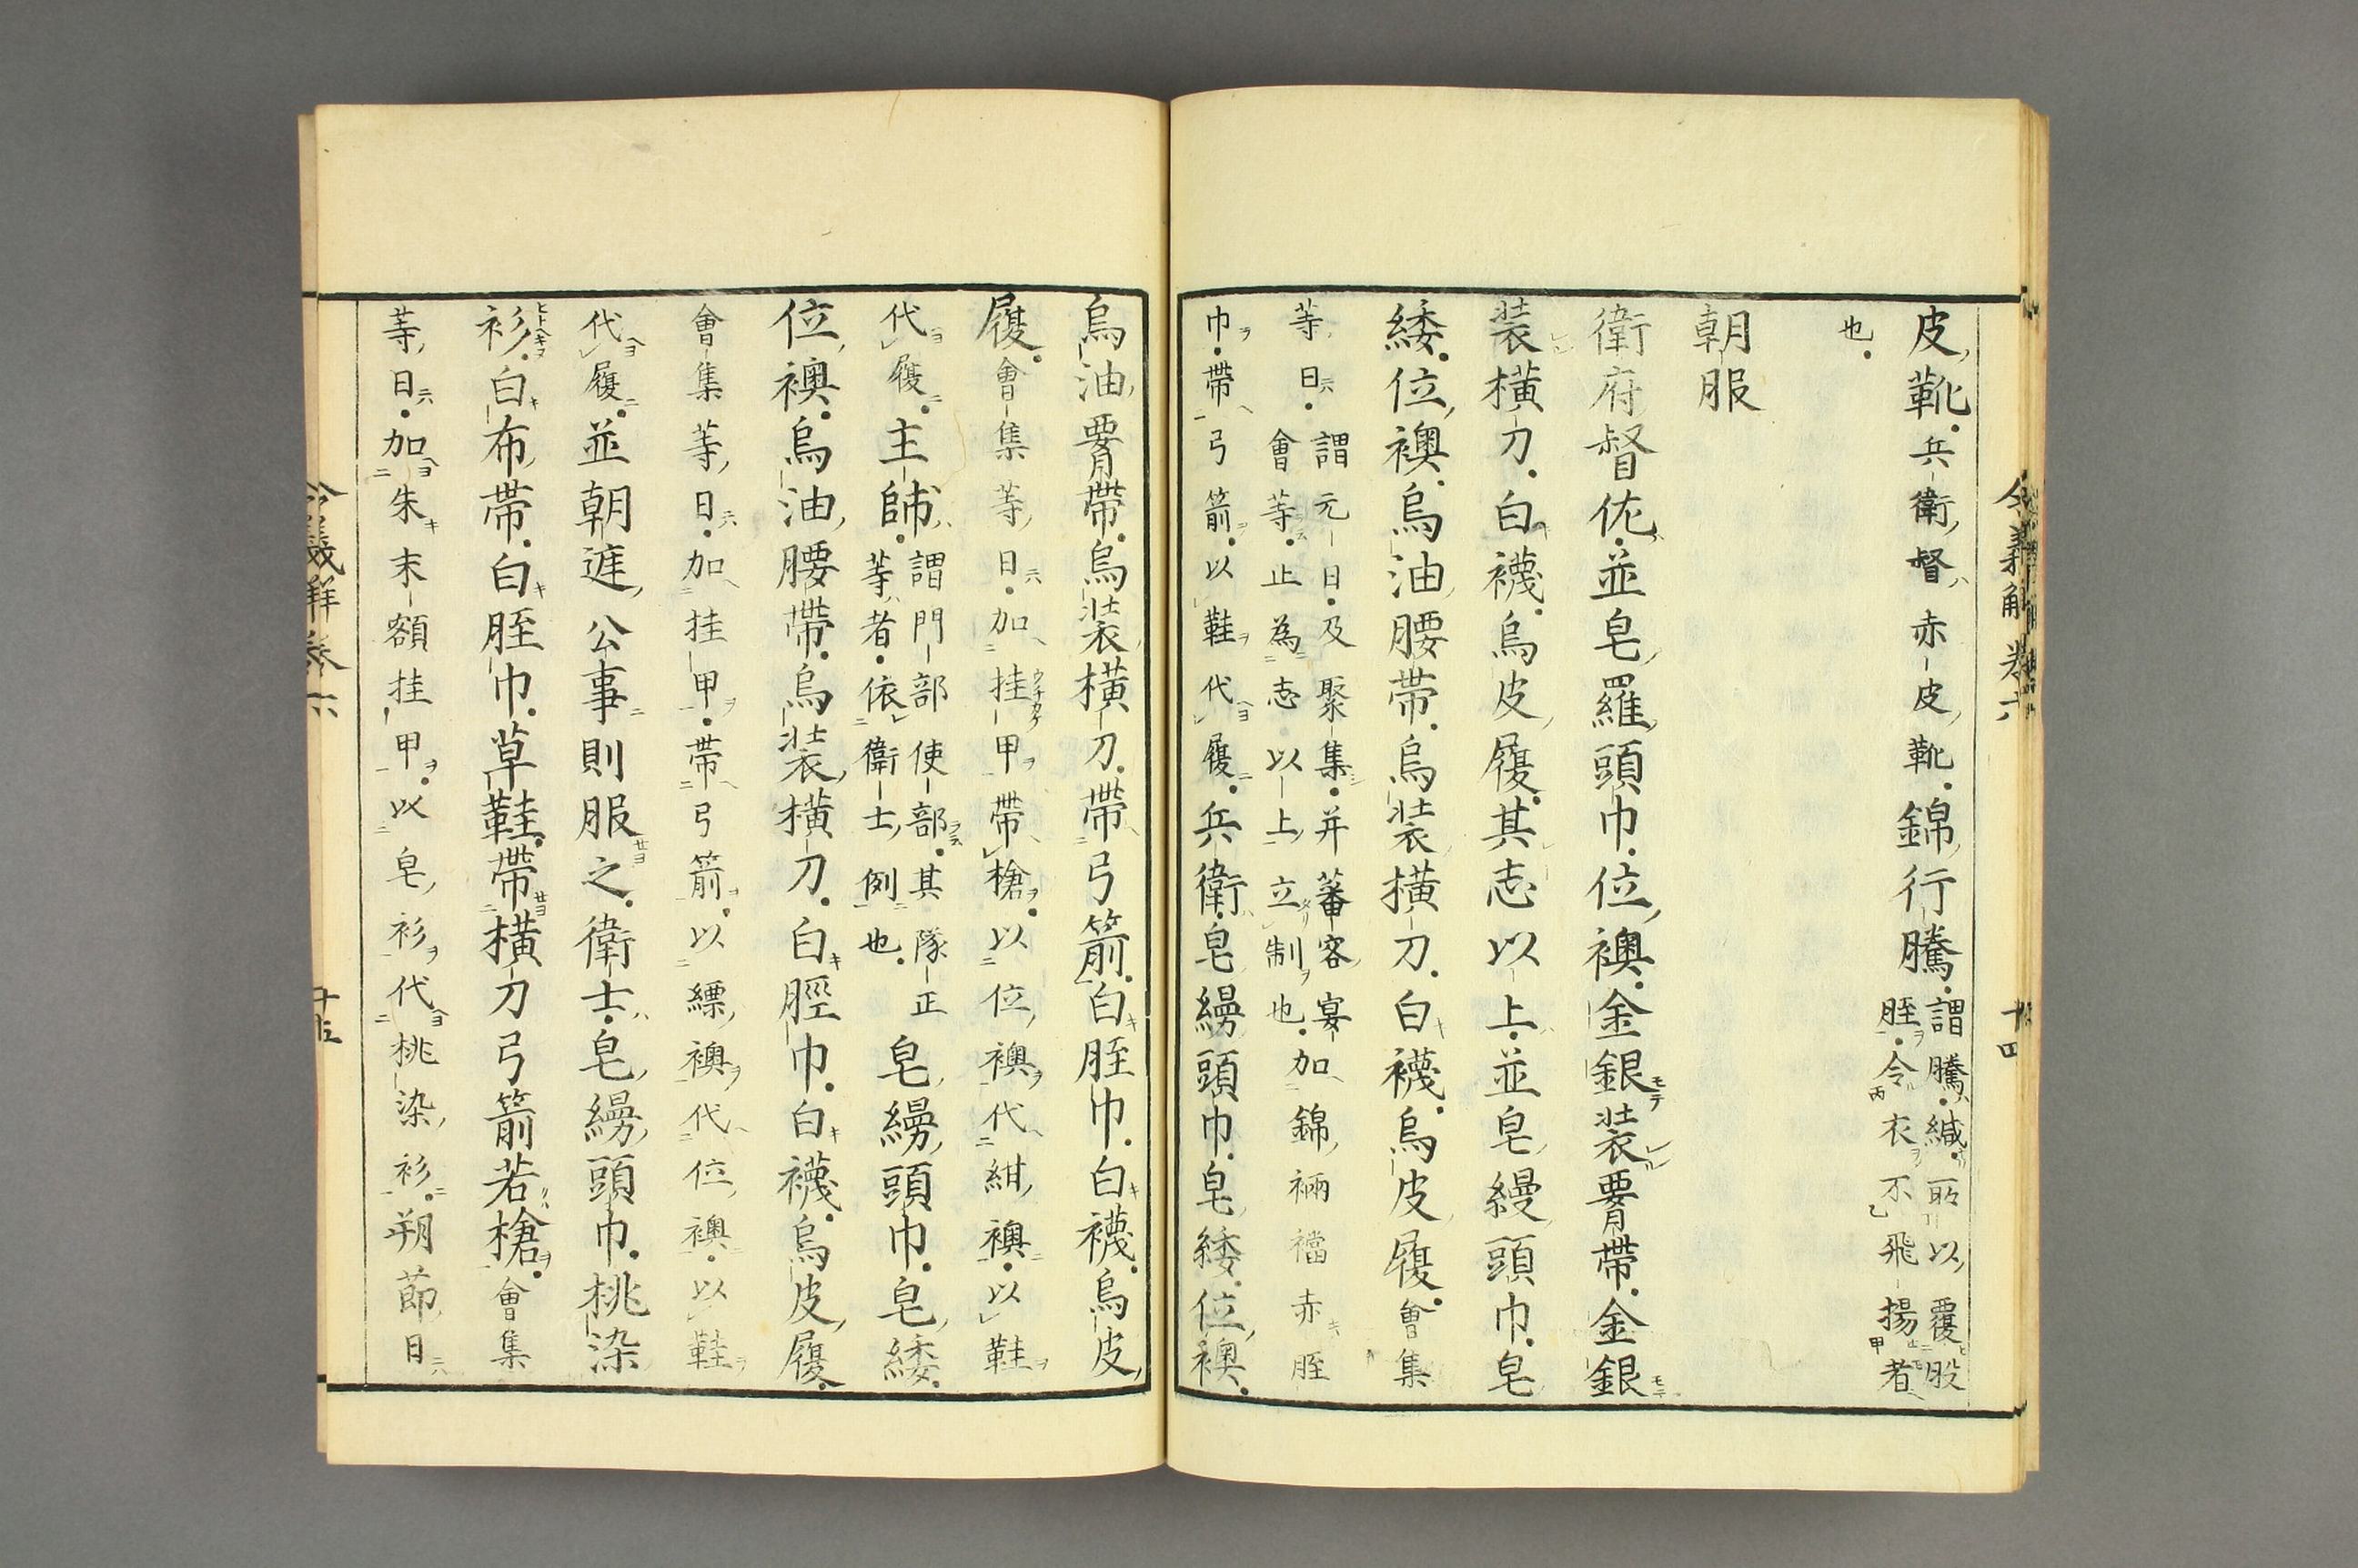 令義解卷六 十四
皮靴兵衛督赤皮靴錦行騰謂騰緘所以覆股
脛令衣不飛揚者
也
朝服
衛府督佐並皂羅頭巾位襖金銀装腰帶金銀
装横刀白襪烏皮履其志以上並皂縵頭巾皂
緌位襖烏油腰帶烏装横刀白襪烏皮履會集
等日謂元日及聚集并蕃客宴
會等止為志以上立制也加錦裲襠赤脛
巾帶弓箭以鞋代履兵衛皂縵頭巾皂緌位襖
烏油腰帶烏装横刀帶弓箭白脛巾白襪烏皮
履會集等日加挂甲帶槍以位襖代紺襖以鞋
代履主帥謂門部使部其隊正
等者依衛士例也皂縵頭巾皂緌
位襖烏油腰帶烏装横刀白脛巾白襪烏皮履
會集等日加挂甲帶弓箭以縹襖代位襖以鞋
代履並朝遅公事則服之衛士皂縵頭巾桃染
衫白布帶白脛巾草鞋帶横刀弓箭若槍會集
等日加朱末額挂甲以皂衫代桃染衫朔節日
令義解卷六 十五